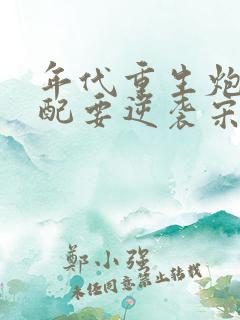 年代重生炮
配要逆袭宋
鄭小強
未经同意禁止转载